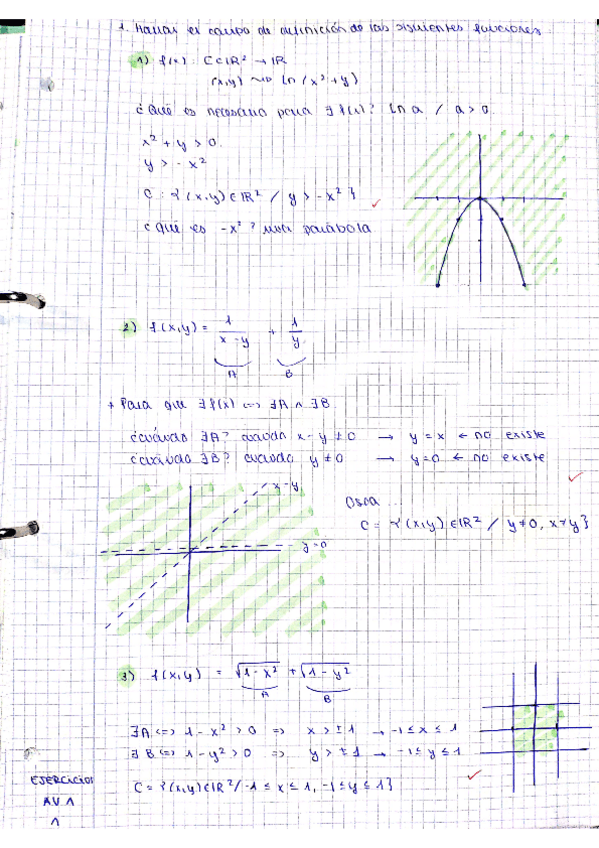 1. Hallar el campo de definición de las siguientes funciones:
1) f(x): C⊂ℝ² → ℝ
(x,y) ~> ln(x²+y)
¿Qué es necesario para ∃ f(x)? ln a / a > 0
x² + y > 0
y > -x²
C: {(x,y) ∈ ℝ² / y > -x²}
¿qué es -x²? una parábola
2) f(x,y) = 1/x-y + 1/y
A B
* Para que ∃ f(x) <=> ∃A ∧ ∃B
¿cuándo ∃A? cuando x-y ≠ 0 → y = x ← no existe
¿cuándo ∃B? cuando y ≠ 0 → y = 0 ← no existe
x-y
y=0
Osea
C = {(x,y) ∈ ℝ² / y ≠ 0, x ≠ y}
3) f(x,y) = √1-x² + √1-y²
A B
∃A <=> 1-x² > 0 => x > ±1 → -1 ≤ x ≤ 1
∃B <=> 1-y² > 0 => y > ±1 → -1 ≤ y ≤ 1
C = {(x,y) ∈ ℝ² / -1 ≤ x ≤ 1, -1 ≤ y ≤ 1}
EJERCICIOS
AV 1
1